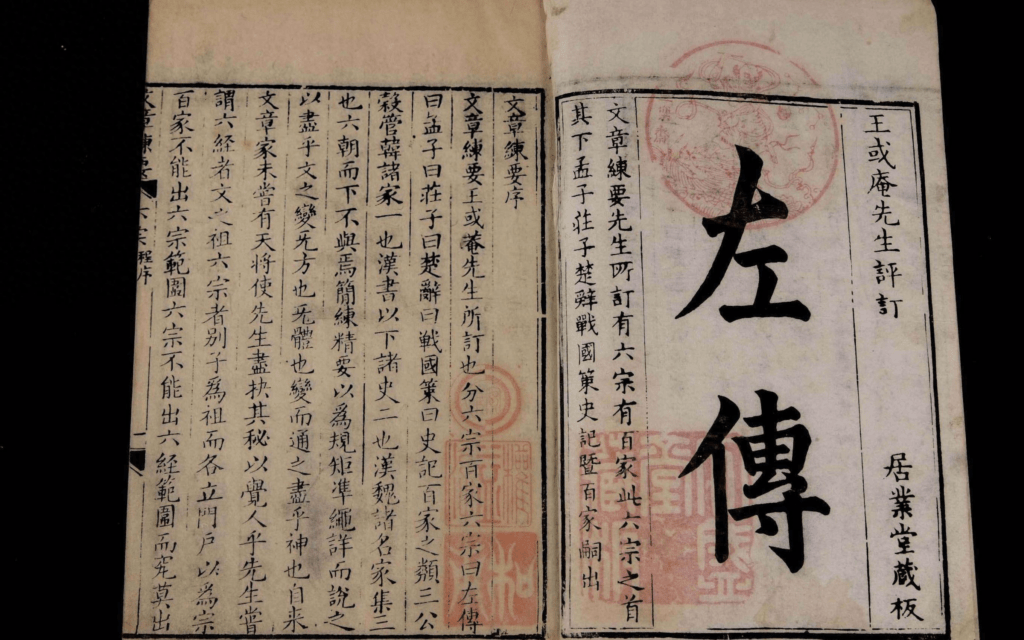 王或庵先生評訂
居業堂蔵板
左傳
文章練要先生所訂有六宗有百家此六宗之首
其下孟子荘子楚辭戰國策史記暨百家嗣出
文章練要序
文章練要王或菴先生所訂也分六宗百家六宗曰左傳
曰孟子曰莊子曰楚辭曰戰國策曰史記百家之類三公
穀管韓諸家一也漢書以下諸史二也漢魏諸名家集三
也六朝而下不與焉簡練精要以為規矩準繩詳而說之
以盡乎文之變旡方也旡體也變而通之盡乎神也自来
文章家未嘗有天將使先生盡抉其秘以覺人乎先生嘗
謂六経者文之祖六宗者别子為祖而各立門戶以為宗
百家不能出六宗範圍六宗不能出六経範圍而究莫出
文章練要
六宗
程序
一